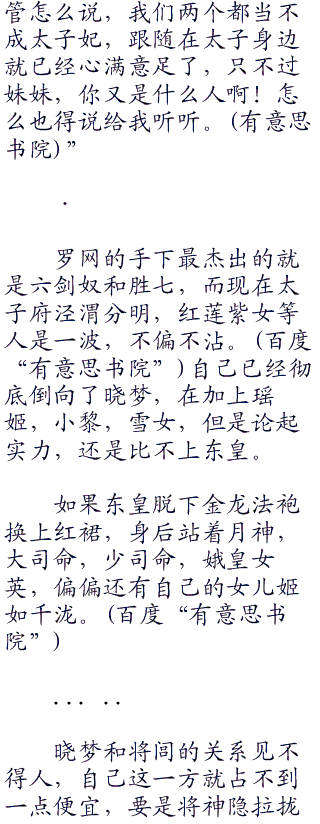 管怎么说，我们两个都当不
成太子妃，跟随在太子身边
就已经心满意足了，只不过
妹妹，你又是什么人啊！怎
么也得说给我听听。(有意思
书院)”
.
罗网的手下最杰出的就
是六剑奴和胜七，而现在太
子府泾渭分明，红莲紫女等
人是一波，不偏不沾。(百度
“有意思书院”)自己已经彻
底倒向了晓梦，在加上瑶
姬，小黎，雪女，但是论起
实力，还是比不上东皇。
如果东皇脱下金龙法袍
换上红裙，身后站着月神，
大司命，少司命，娥皇女
英，偏偏还有自己的女儿姬
如千泷。(百度“有意思书
院”)
... ..
晓梦和将闾的关系见不
得人，自己这一方就占不到
一点便宜，要是将神隐拉拢